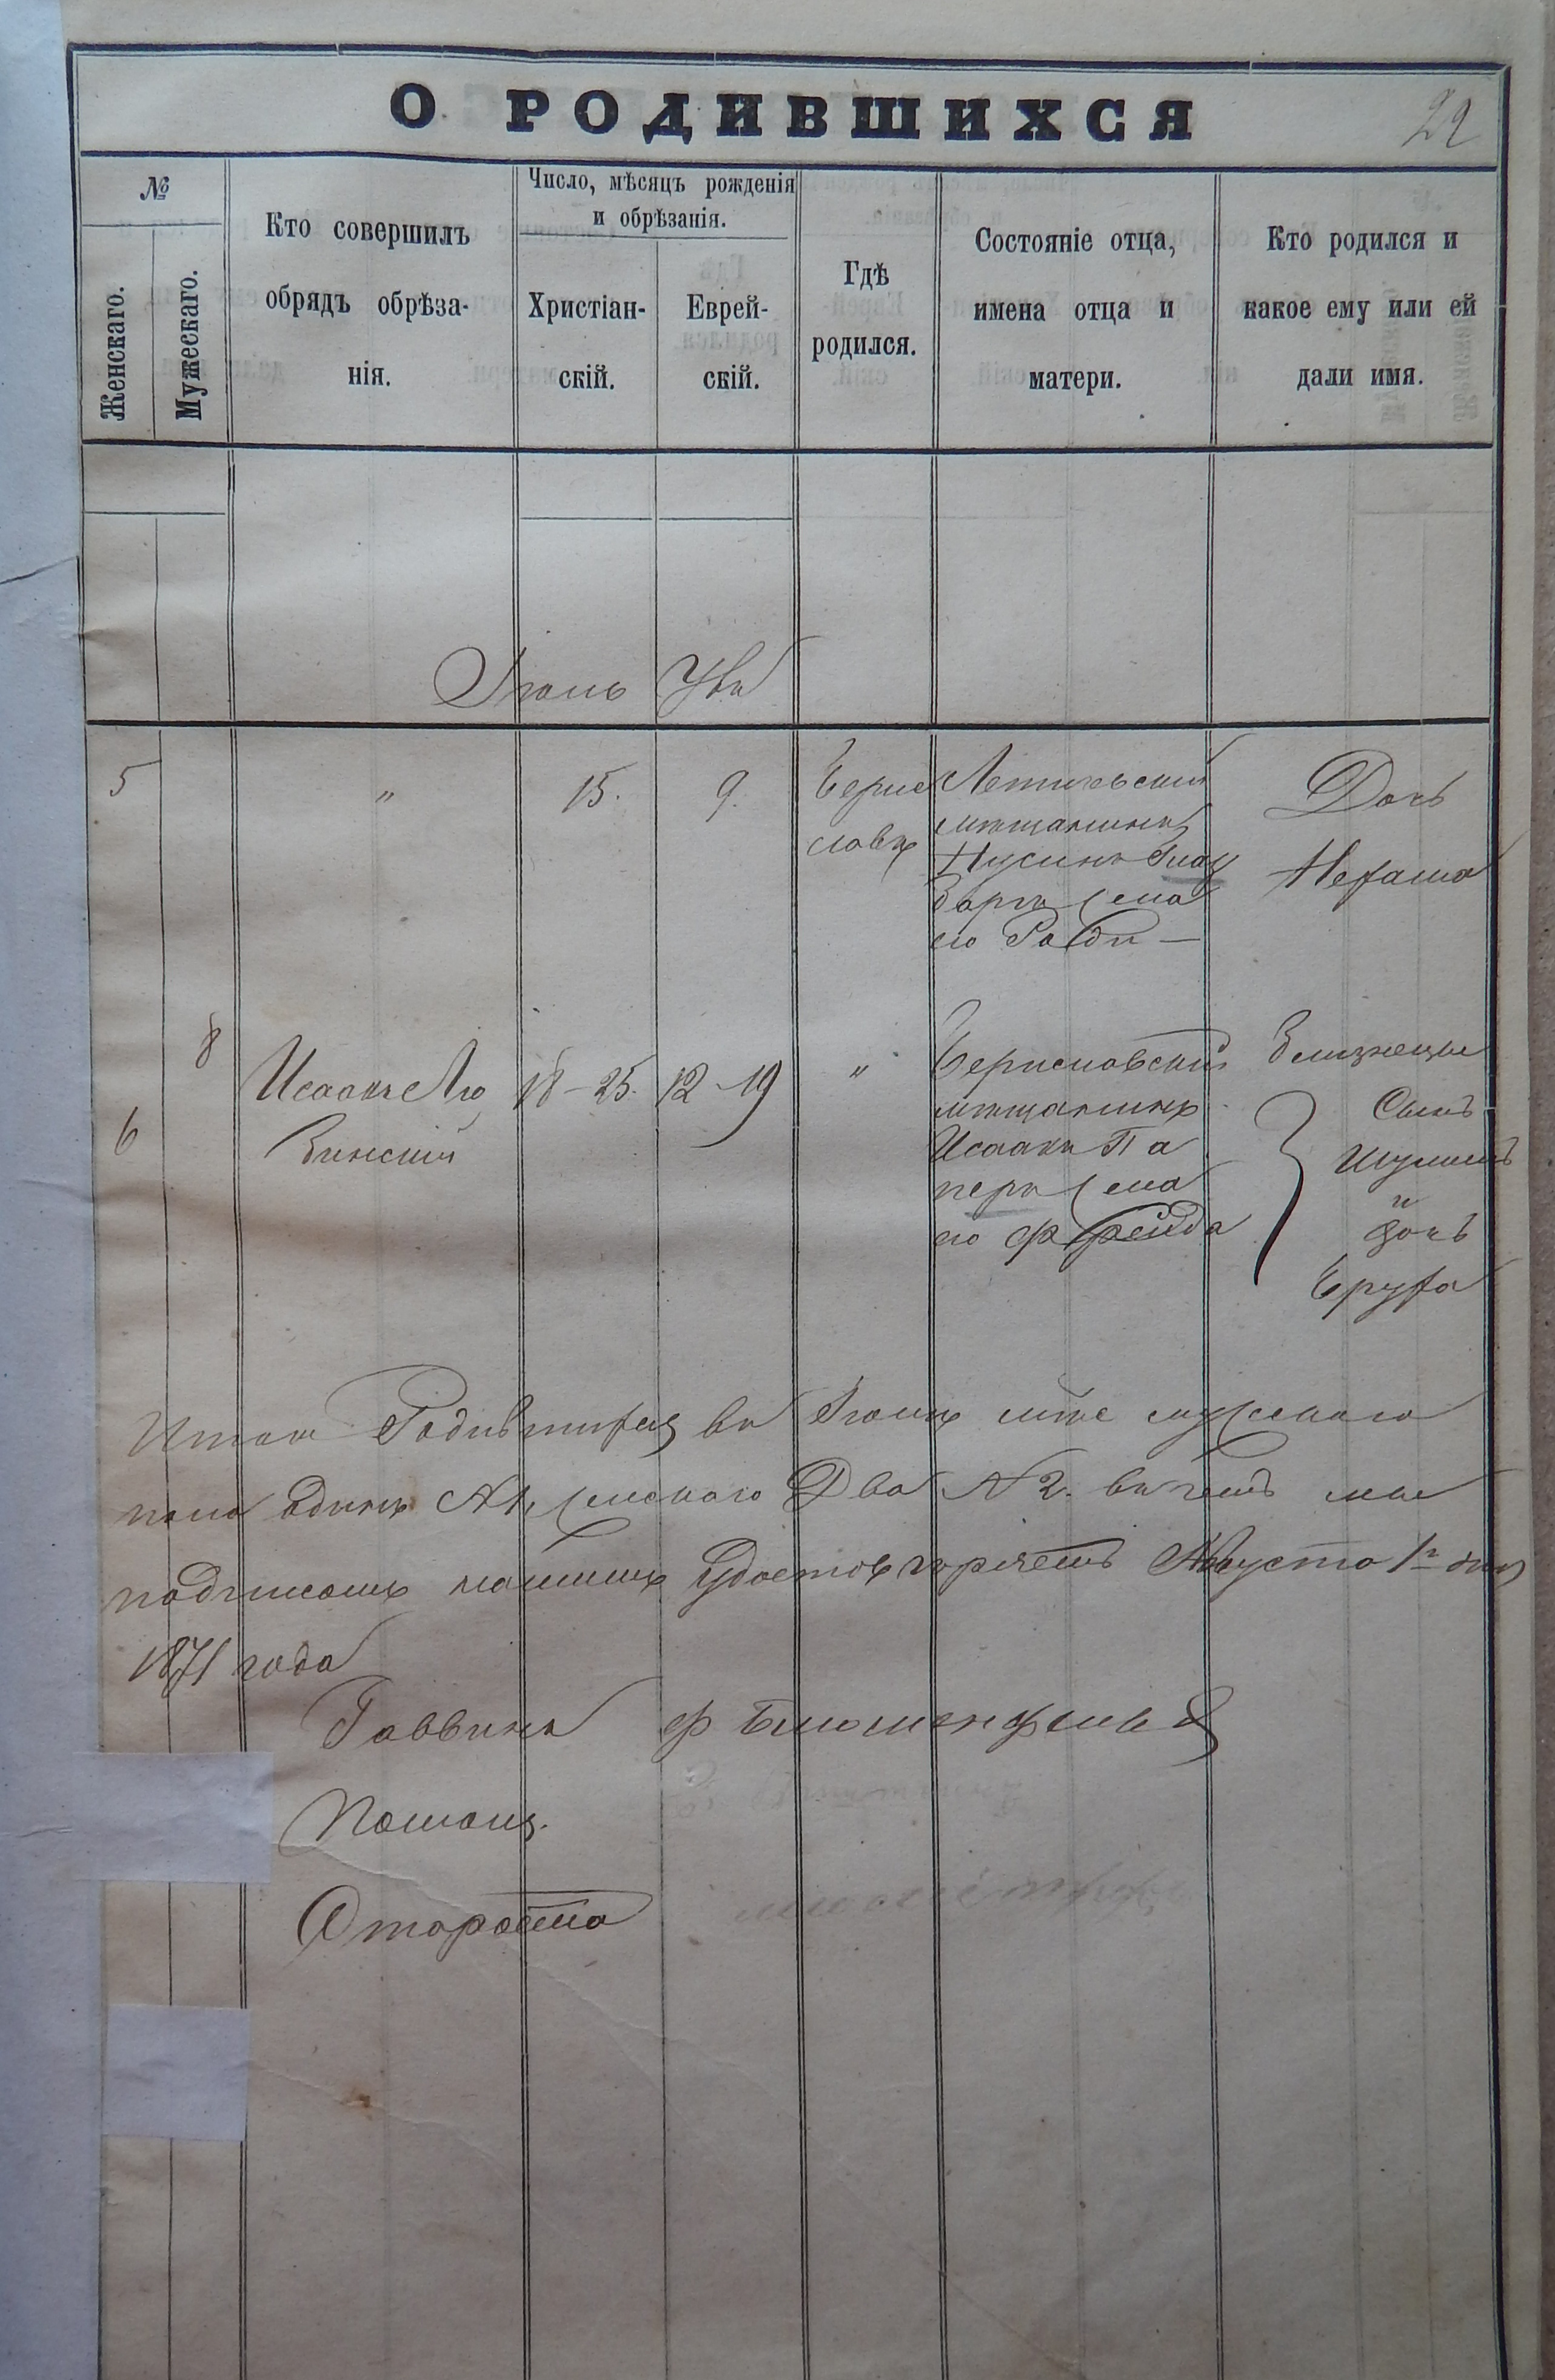 О РОДИВШИХСЯ
22
№
Женскаго.
Мужескаго.
Кто совершилъ
обрядъ обрѣза-
нія.
Число, мѣсяцъ рожденія
и обрѣзанія.
Христіан-
скій.
Еврей-
скій.
Гдѣ
родился.
Состояніе отца,
имена отца и
матери.
Кто родился и
какое ему или ей
дали имя.
Іюль Увъ
5
"
15.
9.
Берис
лавѣ
мѣщанинъ
Нусинъ
жена
его
Дочь
Нехама
8
6
Исаакъ Лю
бинскій
18-25.
12-19
"
Бериславскій
мѣщанинъ
Исаакъ Па
перъ жена
его Фрейда
Близнецы
Сынъ
Шулимъ
и
дочь
Бруха
Итого Родившихся въ Іюлѣ мужескаго
пола одинъ №1, женскаго Два №2. въ чемъ мы
подписомъ нашимъ удостовѣряемъ Августа 1го дня
1871 года
Раввинъ Ф Блюменфельд
Помощ.
Староста